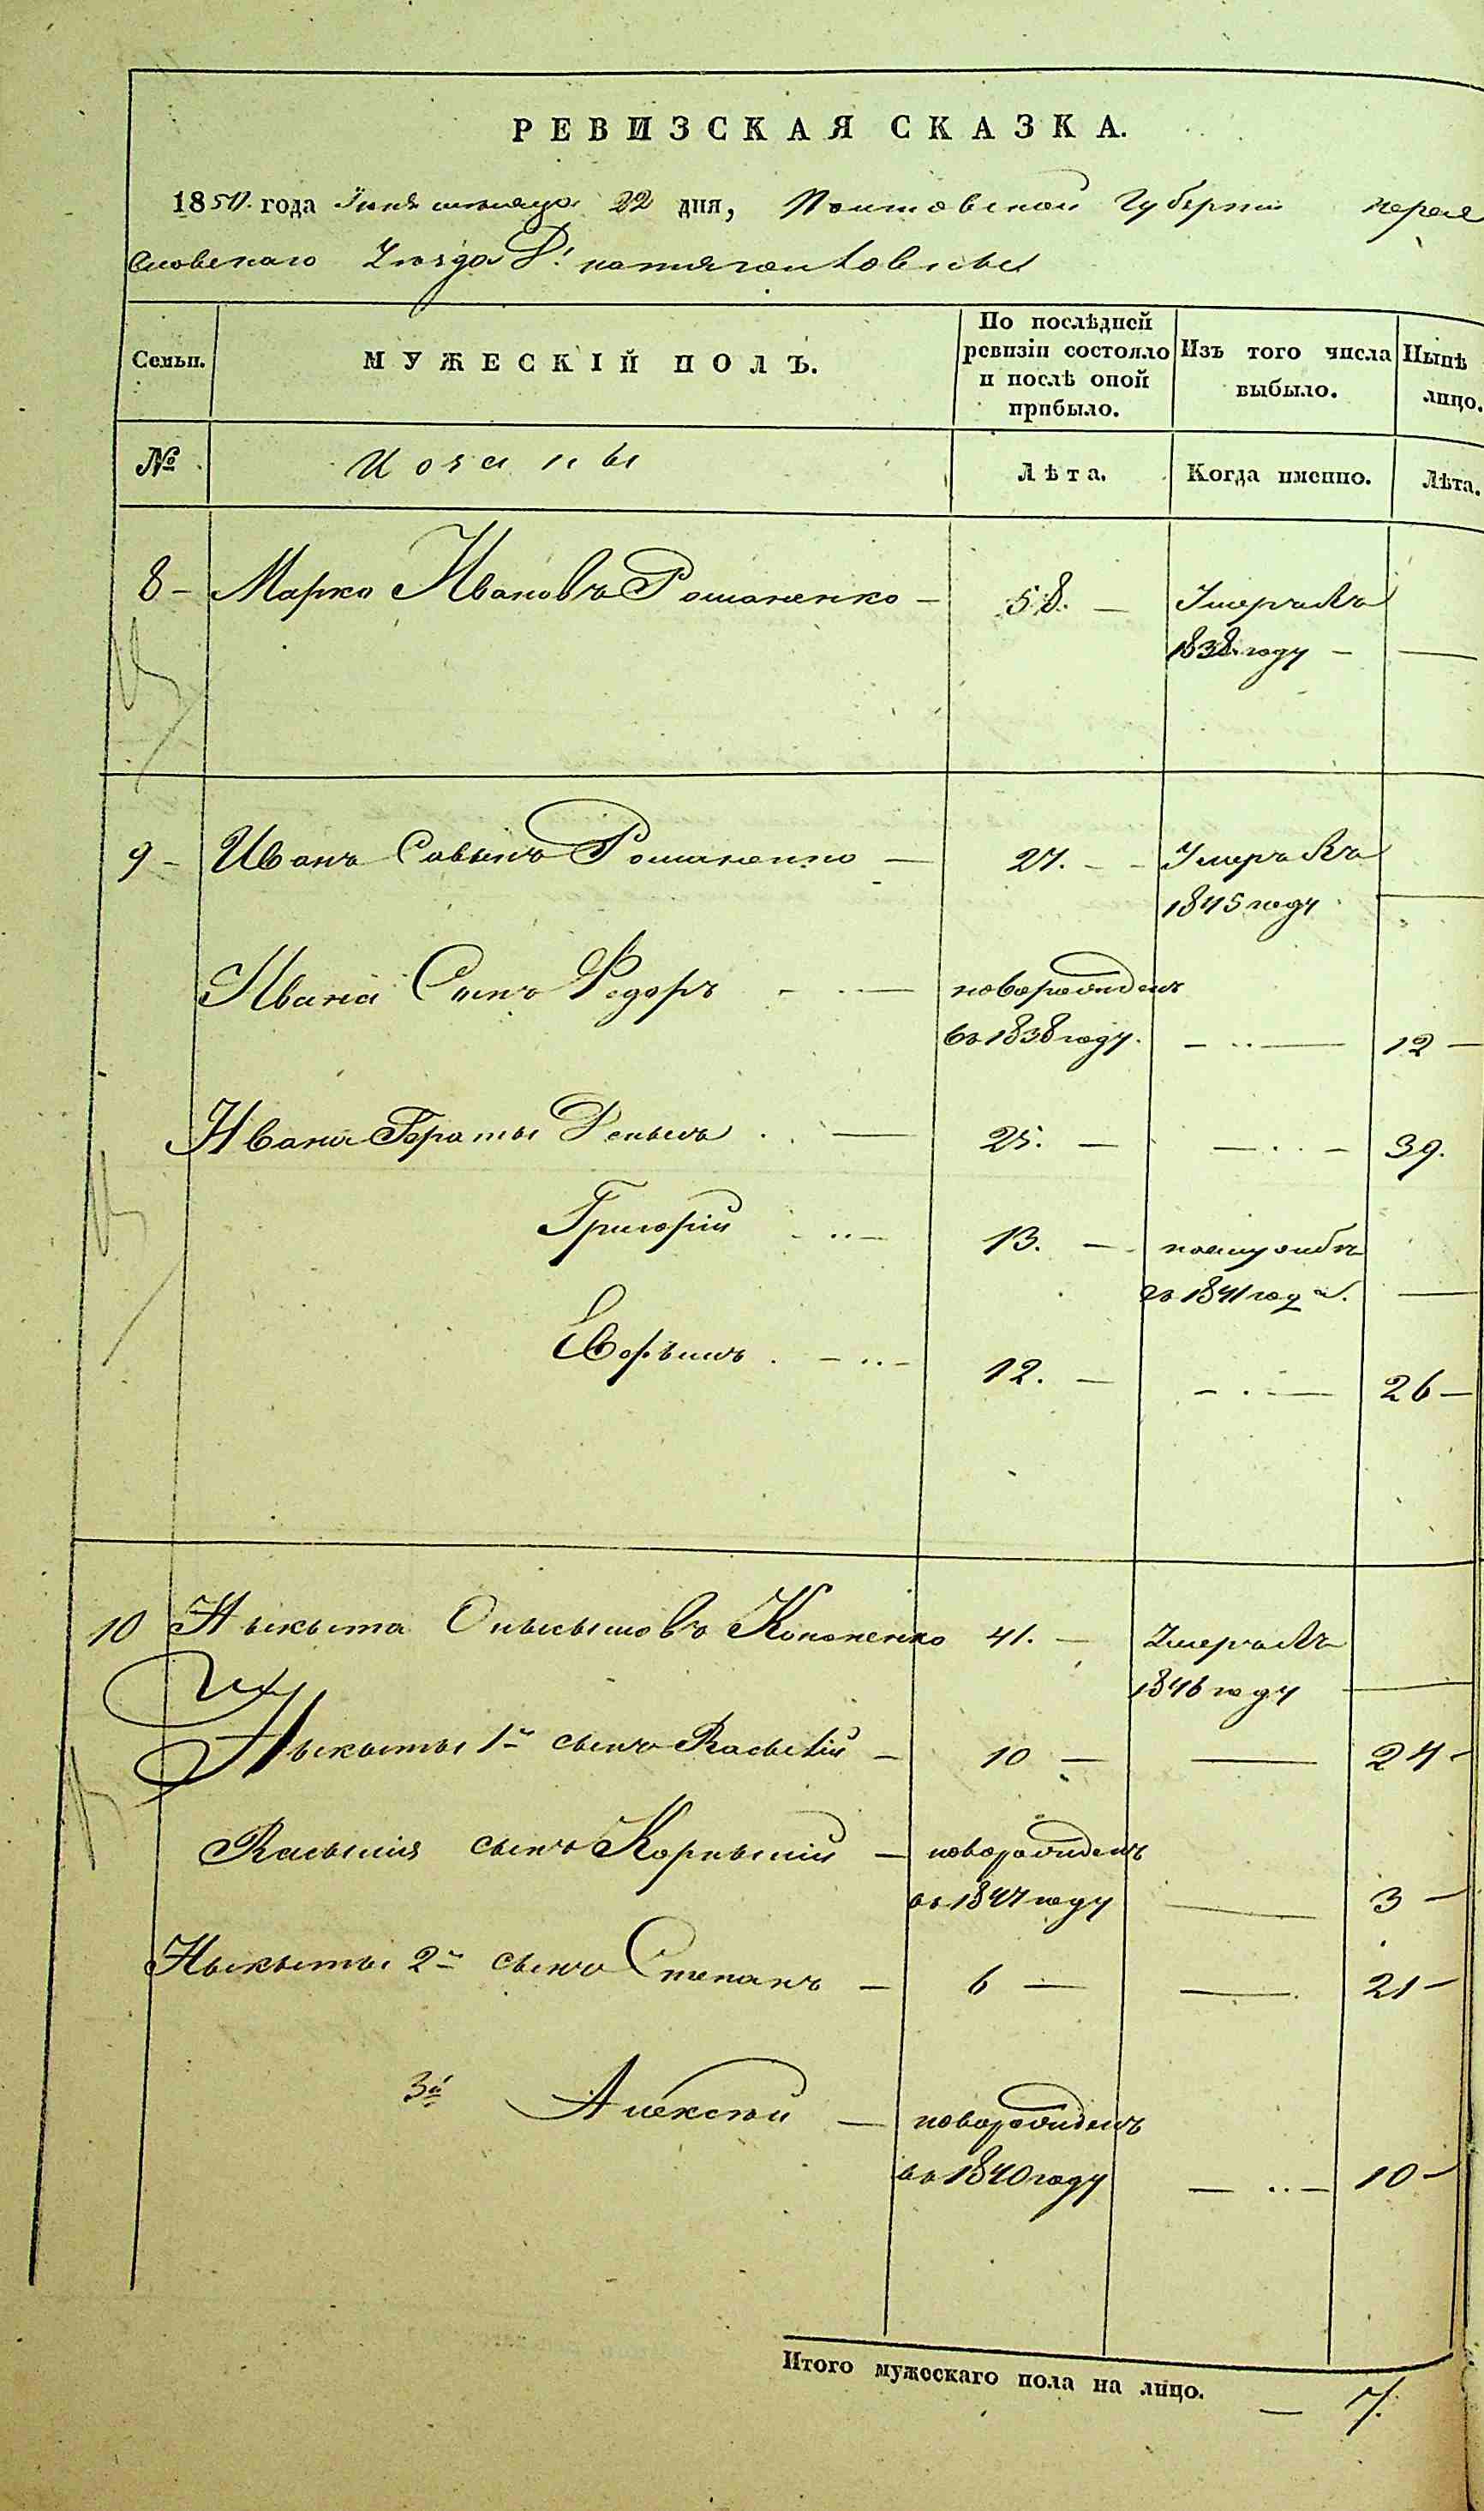 РЕВИЗСКАЯ СКАЗКА.
1850. года Іюня месяца 22 дня, Полтавской Губерніи перея
славскаго Уезда
Семьи. МУЖЕСКІЙ ПОЛЪ. По послѣдней ревизіи состояло и послѣ оной прибыло. Изъ того числа выбыло. Нынѣ лицо.
№ Козаки Лѣта. Когда именно. Лѣта.
8 – Марко Ивановъ Романенко – 58. – Умеръ въ
1838 году – —
9 – Иванъ Савынъ Романенко — 27. – – Умеръ въ
1845 году —
Ивана Сынъ Федоръ – — новорожденъ
въ 1838 году. – — 12 –
Ивана Браты Денысъ — 25. — — – 39.
Григорій – 13. –
въ 1841 —
12. — – — 26 –
10 Ныкыта Онысымовъ Кононенко 41. – Умеръ въ
1846 году —
Ныкыты 1й сынъ Васылій – 10 — — 24 –
Васылія сынъ Корнылій – новорожденъ
въ 1847 году — 3 –
Ныкыты 2й сынъ Степанъ – 6 — — 21 –
3й Алексѣй – новорожденъ
въ 1840 году — – 10 –
Итого мужескаго пола на лицо. — 7.